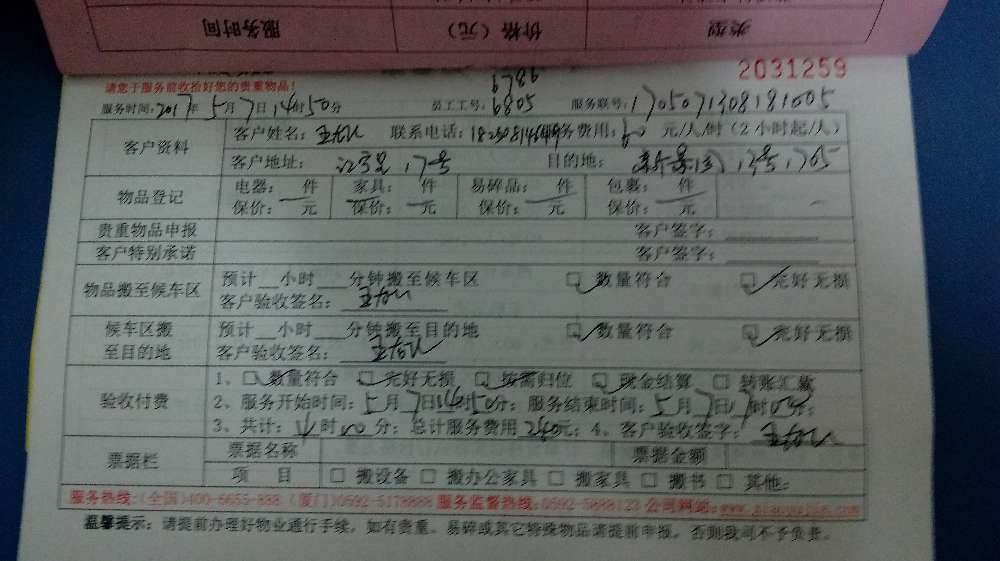 服务时间 价格（元） 类型
2031259
请您于服务前收拾好您的贵重物品！
9879
服务时间：2017年5月7日14时50分 员工工号：6805 服务联号：1705071308181005
客户资料 客户姓名： 联系电话： 服务费用：60元/人/时（2小时起/人）
客户地址： 17号 目的地：
物品登记 电器： 件 家具： 件 易碎品： 件 包裹： 件
保价： 元 保价： 元 保价： 元 保价： 元
贵重物品申报 客户签字：
客户特别承诺 客户签字：
物品搬至候车区 预计__小时___分钟搬至候车区 □数量符合 □完好无损
客户验收签名：
候车区搬 预计__小时___分钟搬至目的地 □数量符合 □完好无损
至目的地 客户验收签名：
验收付费 1、□数量符合 □完好无损 □按需归位 □现金结算 □转账汇款
2、服务开始时间：5月7日14时50分；服务结束时间：5月7日17时00分；
3、共计： 时10分；总计服务费用240元；4、客户验收签字：
票据栏 票据名称 票据金额
项 目 □搬设备 □搬办公家具 □搬家具 □搬书 □其他：
服务热线：(全国)400-6655-888 (厦门)0592-5178888 服务监督热线：0592-5688123 公司网站：
温馨提示：请提前办理好物业通行手续，如有贵重、易碎或其它特殊物品请提前申报，否则我司不予负责。